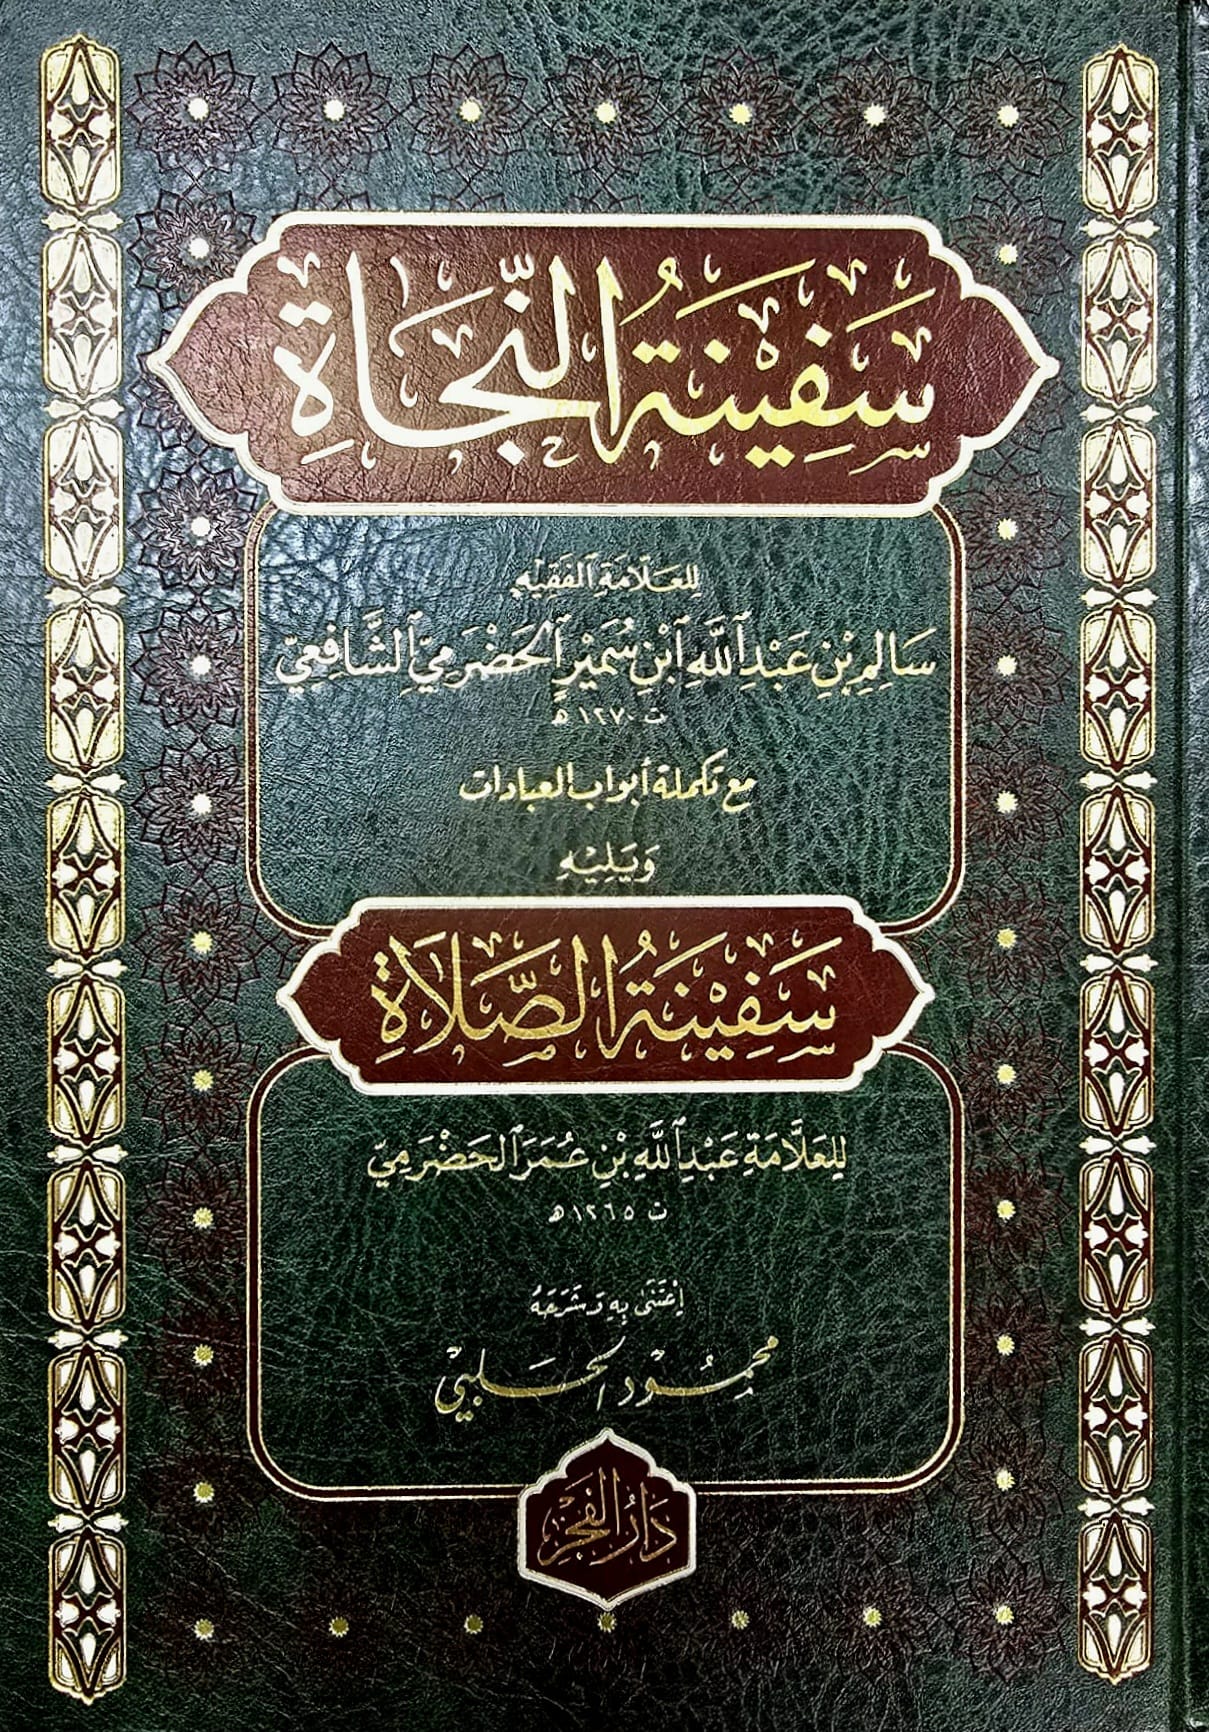 سَفِينَةُ النَّجَاةِ
لِلعَلَّامَةِ ٱلفَقِيْهِ
سَالِمِ بْنِ عَبْدِ ٱللَّهِ ٱبْنِ سُمَيْرٍ ٱلْحَضْرَمِيِّ ٱلشَّافِعِيِّ
ت ١٢٧٠ هـ
مع تكملة أبواب العبادات
وَيَلِيْهِ
سَفِيْنَةُ الصَّلَاةِ
لِلعَلَّامَةِ عَبْدِ ٱللَّهِ بْنِ عُمَرَ ٱلحَضْرَمِيِّ
ت ١٢٦٥ هـ
اِعْتَنَىٰ بِهِ وَشَرَحَهُ
محمُوْد الحَلَبيْ
دَارُ الفَجْرِ